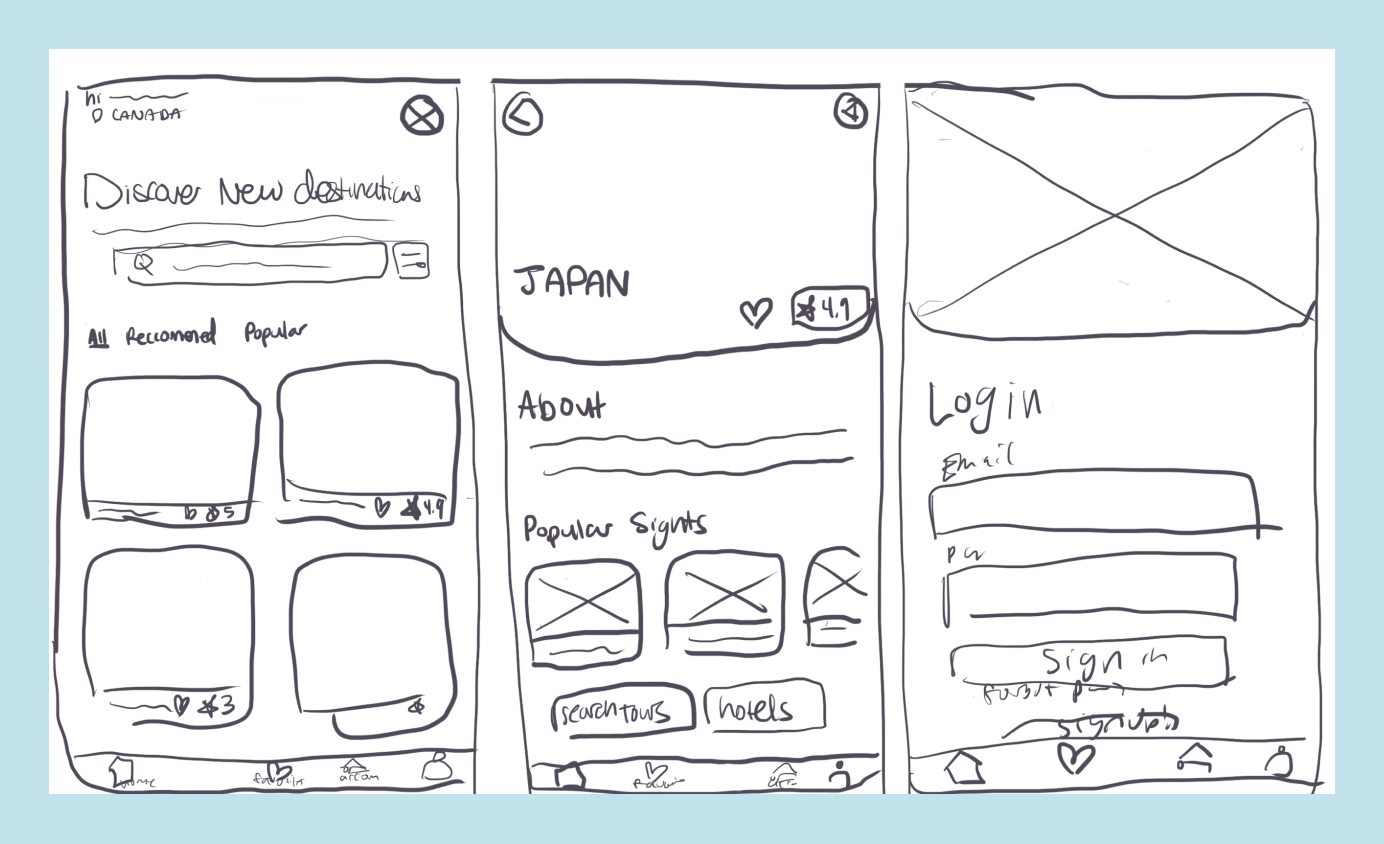 hi
CANADA
Discover New destinations
All Reccomened Popular
5
4.9
3
home
accom
JAPAN
4.9
About
Popular Signts
search tours
hotels
Login
Email
pw
Sign in
forgot
sign up